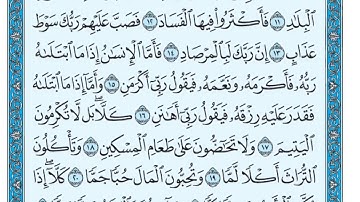 ٱلْبِلَٰدِ ١١ فَأَكْثَرُوا۟ فِيهَا ٱلْفَسَادَ ١٢ فَصَبَّ عَلَيْهِمْ رَبُّكَ سَوْطَ
عَذَابٍ ١٣ إِنَّ رَبَّكَ لَبِٱلْمِرْصَادِ ١٤ فَأَمَّا ٱلْإِنسَٰنُ إِذَا مَا ٱبْتَلَىٰهُ
رَبُّهُۥ فَأَكْرَمَهُۥ وَنَعَّمَهُۥ فَيَقُولُ رَبِّىٓ أَكْرَمَنِ ١٥ وَأَمَّآ إِذَا مَا ٱبْتَلَىٰهُ
فَقَدَرَ عَلَيْهِ رِزْقَهُۥ فَيَقُولُ رَبِّىٓ أَهَٰنَنِ ١٦ كَلَّا ۖ بَل لَّا تُكْرِمُونَ
ٱلْيَتِيمَ ١٧ وَلَا تَحَٰٓضُّونَ عَلَىٰ طَعَامِ ٱلْمِسْكِينِ ١٨ وَتَأْكُلُونَ
ٱلتُّرَاثَ أَكْلًا لَّمًّا ١٩ وَتُحِبُّونَ ٱلْمَالَ حُبًّا جَمًّا ٢٠ كَلَّآ إِذَا